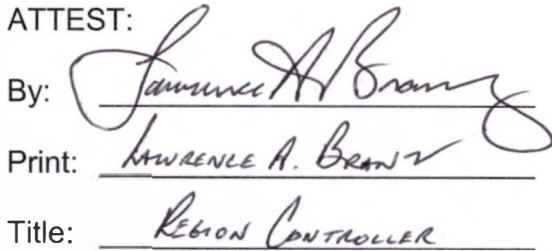 ATTEST:
By: Lawrence A. Brandt
Print: LAWRENCE A. BRANDT
Title: REGION CONTROLLER